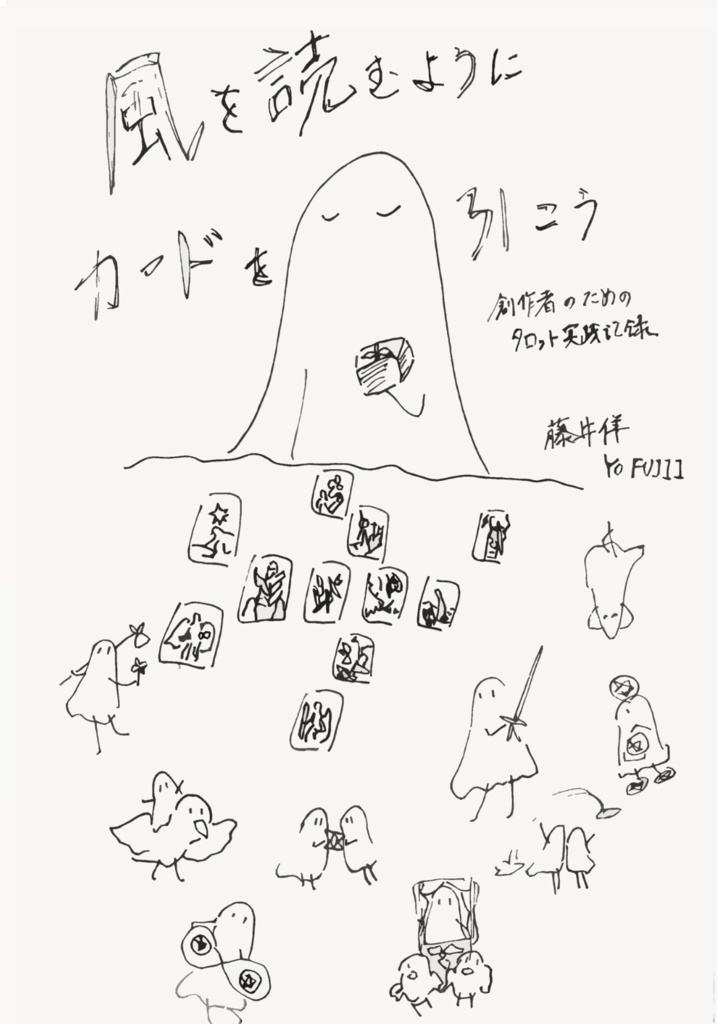 風を読むように
カードを引こう
創作者のための
タロット実践記録
藤井佯
Yo FUJII